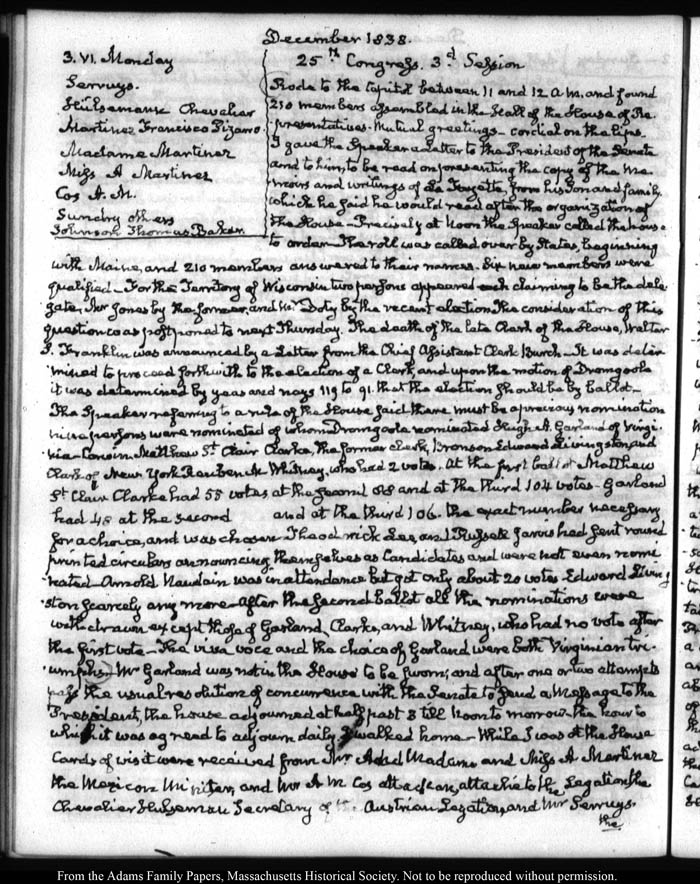 December 1838.
3. VI. Monday
Serruys.
Hülsemann Chevalier
Martinez Francisco Pizarro.
Madame Martinez
Miss A Martinez
Cos A. M.
Sundry others
Johnson Thomas Baker.
25th Congress. 3d Session
Rode to the Capitol between 11 and 12 A.M. and found
210 members assembled in the Hall of the House of Re-
presentatives. Mutual greetings - cordial on the lips.
I gave the Speaker a Letter to the President of the Senate
and to him, to be read on presenting the copy of the Me-
moirs and writings of La Fayette, from his Son and family.
which he said he would read after the organization of
the House - Precisely at Noon the Speaker called the house
to order - The roll was called over by States, beginning
with Maine, and 210 members answered to their names. Six new members were
qualified - For the Territory of Wisconsin two persons appeared each claiming to be the dele-
gate, Mr Jones by the former, and Mr Doty by the recent election. The consideration of this
question was postponed to next Thursday. The death of the late Clerk of the House, Walter
S. Franklin was announced by a Letter from the Chief Assistant Clerk Burch - It was deter-
mined to proceed forthwith to the election of a Clerk, and upon the motion of Dromgoole
it was determined by yeas and nays 119 to 91. that the election should be by ballot -
The Speaker referring to a rule of the House said there must be a previous nomination
persons were nominated of whom Dromgoole nominated Hugh A. Garland of Virgi-
nia - Corwin Matthew St Clair Clarke, the former Clerk, Bronson Edward Livingston and
Clark of New York Reuben M Whitney, who had 2 votes. At the first ballot Matthew
St Clair Clarke had 55 votes, at the second 88 and at the third 104 votes - Garland
had 48 at the second and at the third 106. the exact number necessary
for a choice, and was chosen Theodorick Lee, and Russell Jarvis had sent round
printed circulars announcing themselves as Candidates and were not even nomi-
nated - Arnold Naudain was in attendance but got only about 20 votes - Edward Living-
ston scarcely any more - After the second ballot all the nominations were
withdrawn except those of Garland, Clarke, and Whitney, who had no vote after
the first vote - The viva voce and the choice of Garland were both Virginian tri-
umphs. Mr Garland was not in the House to be sworn; and after one or two attempts
pass the usual resolution of concurrence with the Senate to send a Message to the
President, the house adjourned at half past 3 till Noon to morrow - the hour to
which it was agreed to adjourn daily I walked home - While I was at the House
Cards of visit were received from Mr Madame and Miss A Martinez
the Mexican Minister, and Mr A M Cos attaché to the Legation, the
Chevalier Hulseman Secretary of the Austrian Legation, and Mr Serruys.
the
From the Adams Family Papers, Massachusetts Historical Society. Not to be reproduced without permission.